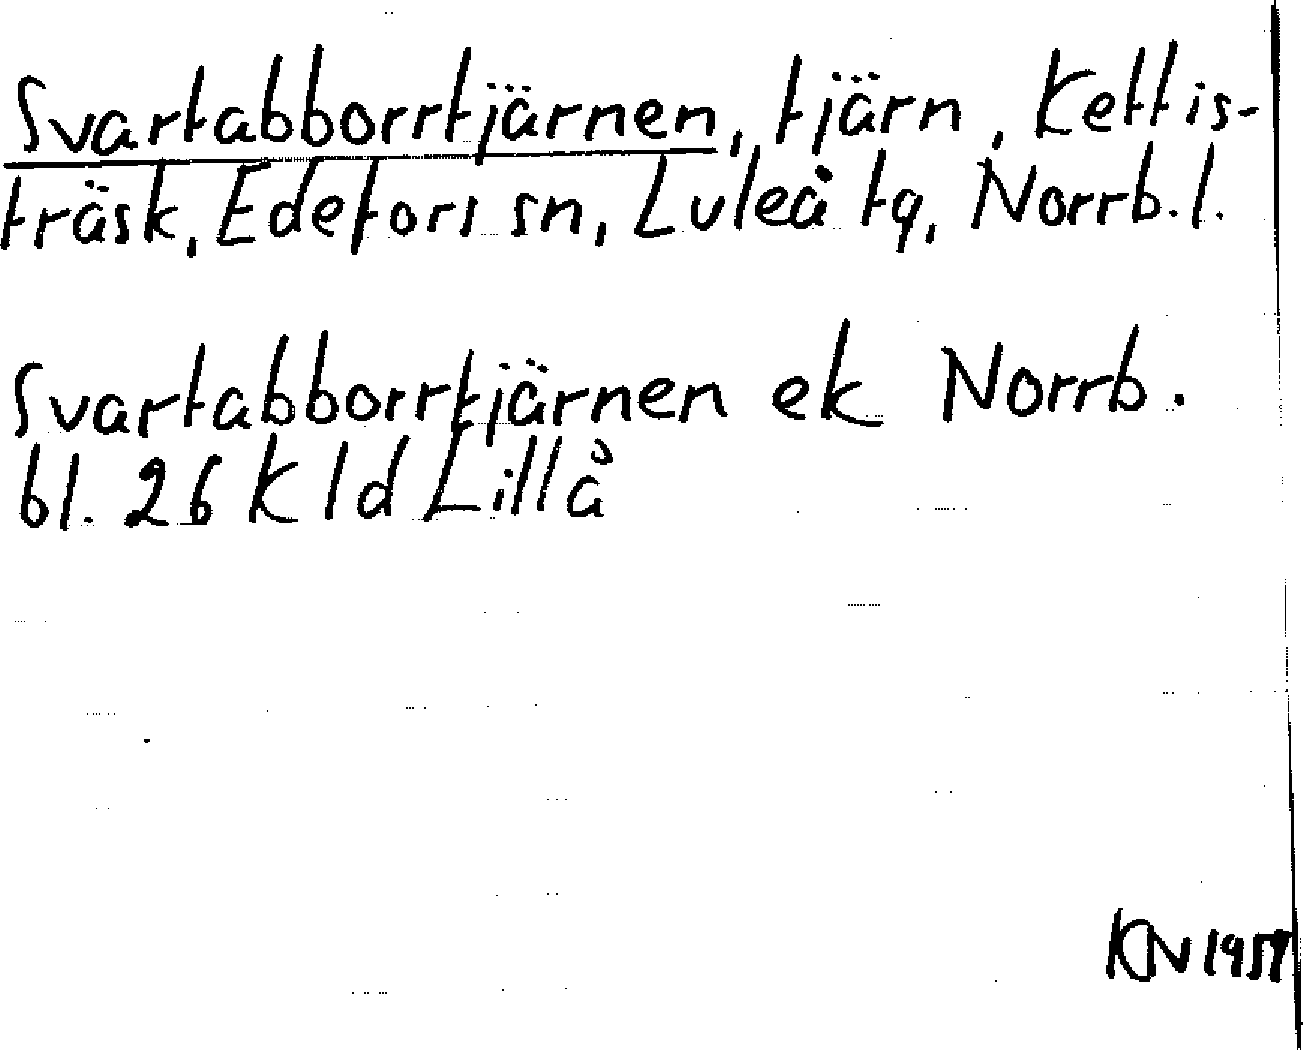 Svartabborrtjärnen, tjärn, Kettis-
träsk, Edefors sn, Luleå tg, Norrb.l.
Svartabborrtjärnen ek Norrb.
bl. 26 k ld Lillå
KN